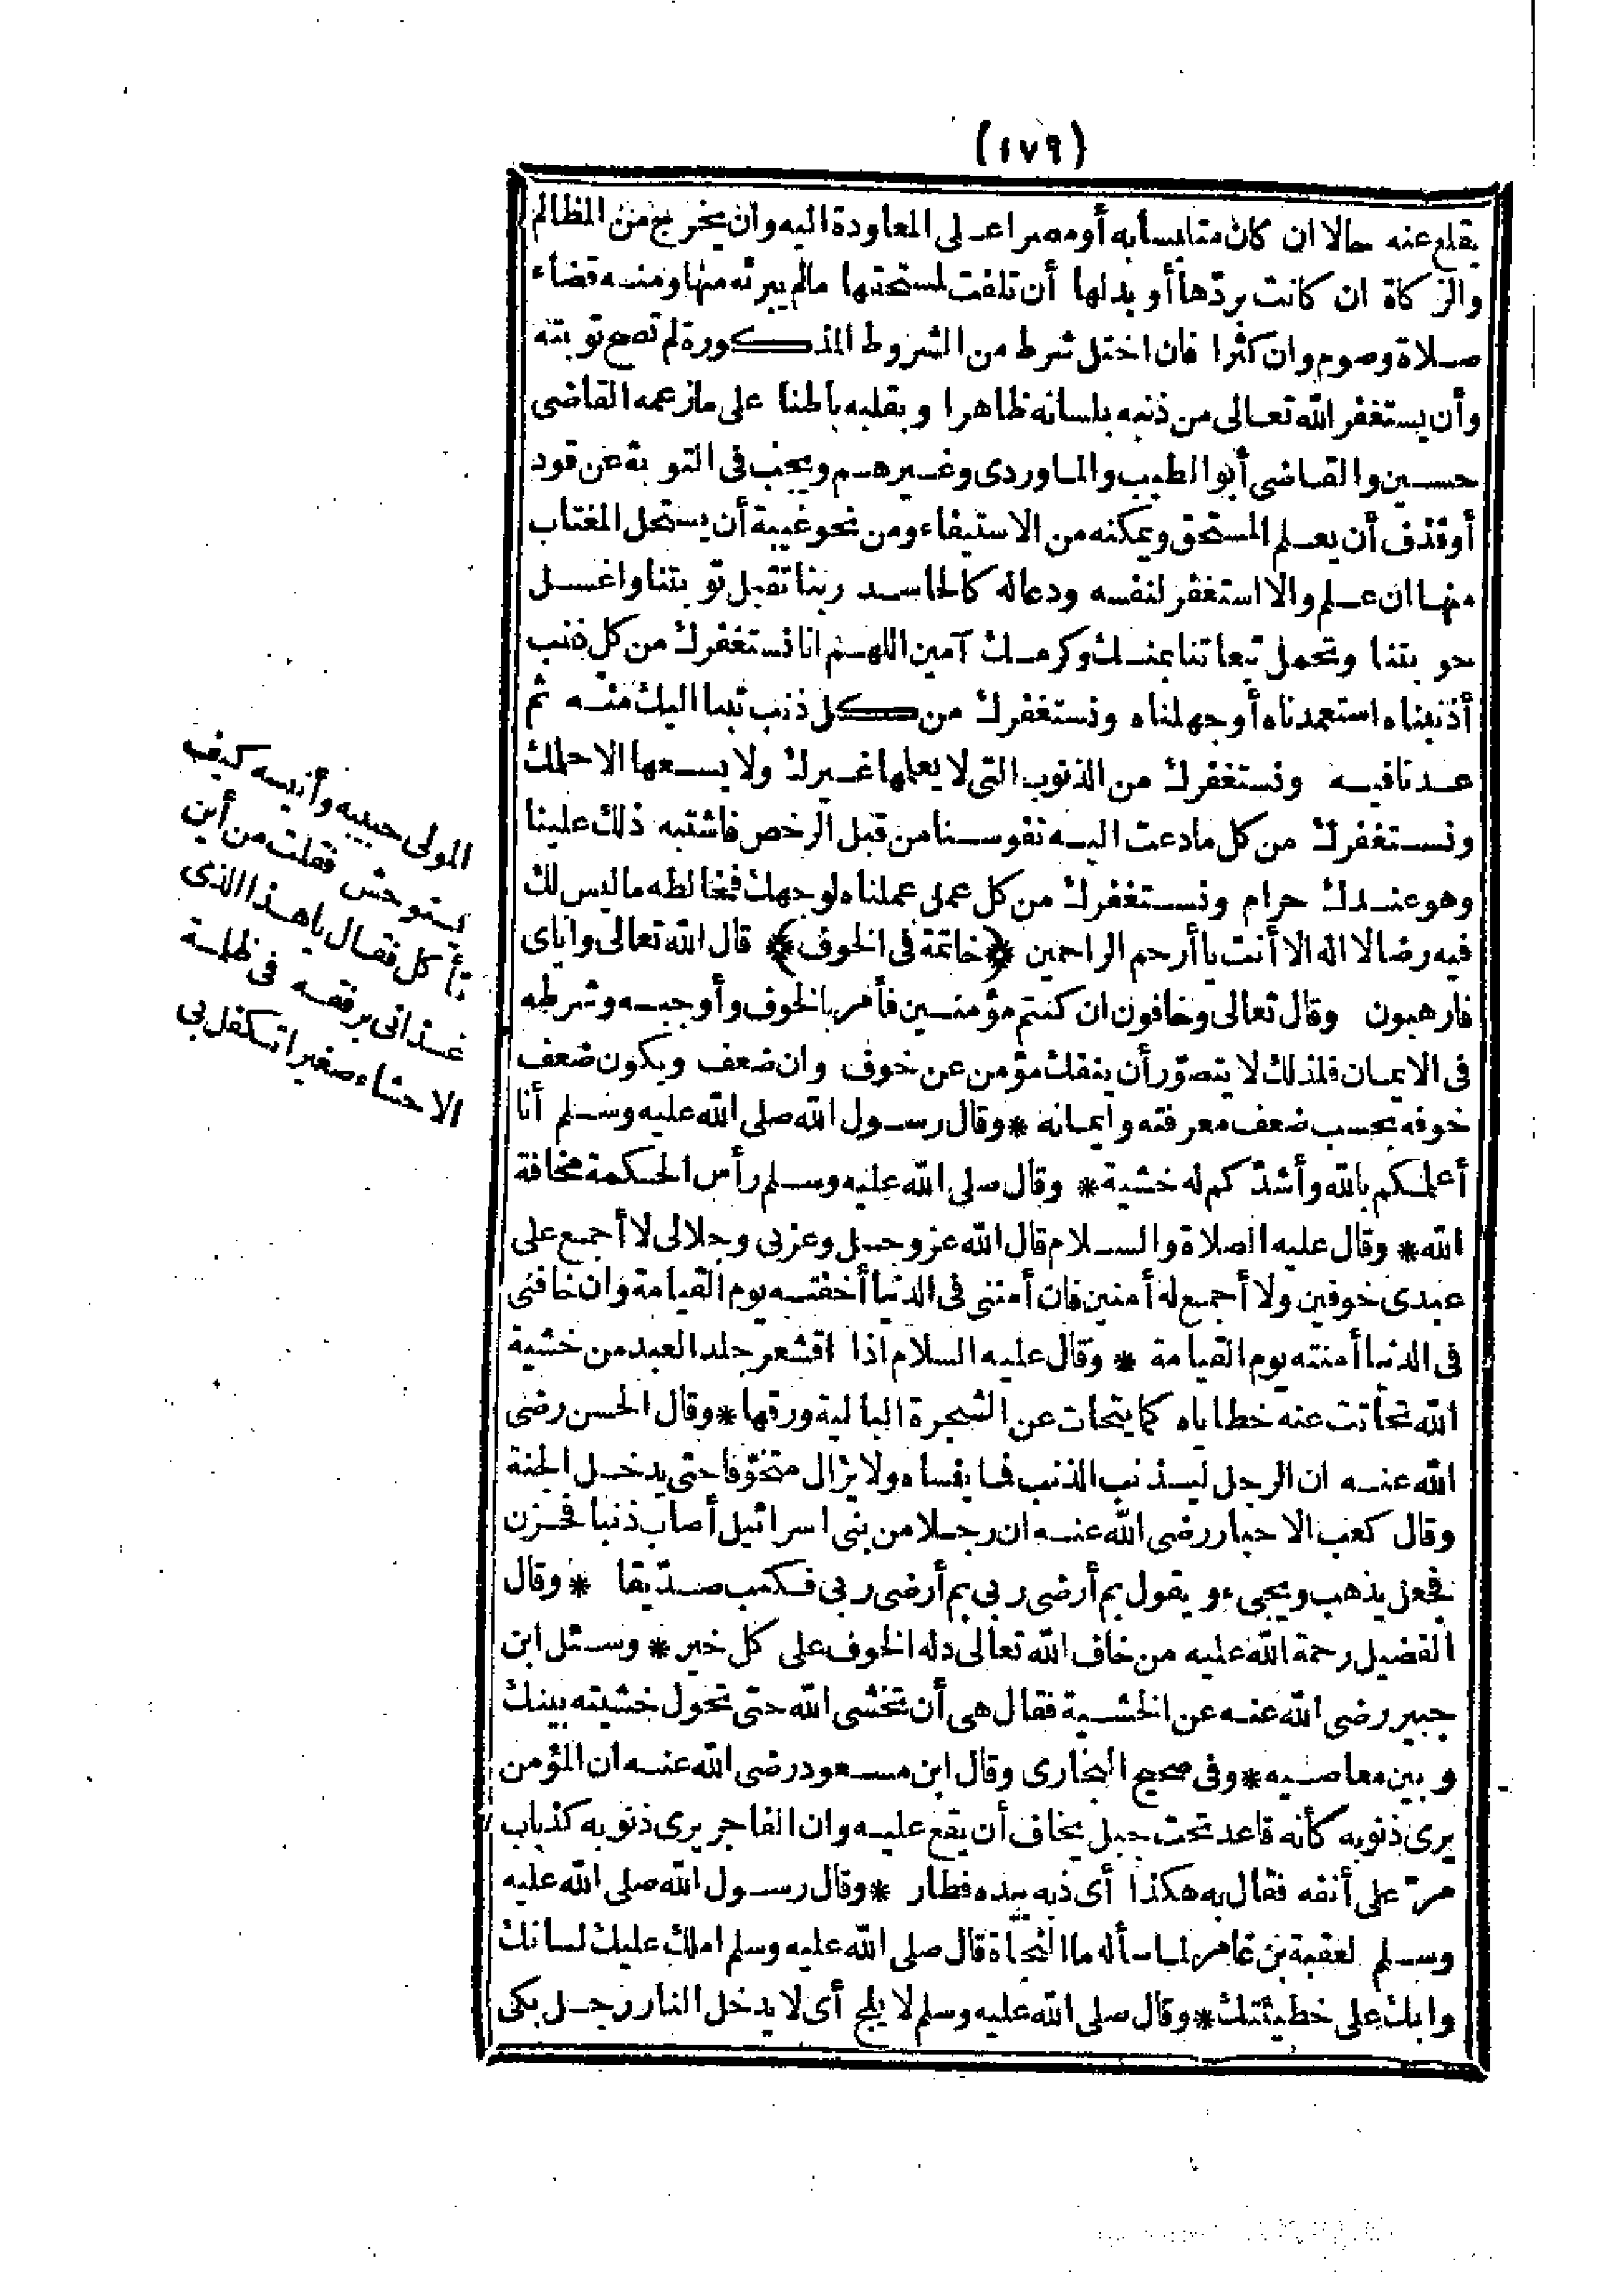 (١٧٩)
يقلع عنه حالا ان كان متلبسا به أو مصرا على المعاودة اليه وان يخرج من المظالم
والزكاة ان كانت بردّها أو بدلها أن تلفت لمستحقها مالم يبرئه منها ومنه قضاء
صلاة وصوم وان كثرا فان اختل شرط من الشروط المذكورة لم تصح توبته
وأن يستغفر الله تعالى من ذنبه بلسانه ظاهرا وبقلبه باطنا على مازعمه القاضى
حسين والقاضى أبو الطيب والماوردى وغيرهم ويجب فى التوبة عن قود
أوقذف أن يعلم المستحق ويمكنه من الاستيفاء ومن نحو غيبة أن يستحل المغتاب
منها ان علم والا استغفر لنفسه ودعاله كالحاسد ربنا تقبل توبتنا واغسل
حوبتنا وتحمل تبعاتنا بمنك وكرمك آمين اللهم انا نستغفرك من كل ذنب
أذنبناه استعمدناه أوجهلناه ونستغفرك من كل ذنب تبنا اليك منه ثم
عدنا فيه ونستغفرك من الذنوب التى لا يعلمها غيرك ولا يسعها الا حلمك
ونستغفرك من كل مادعت اليه نفوسنا من قبل الرخص فاشتبه ذلك علينا
وهو عندك حرام ونستغفرك من كل عمل عملناه لوجهك فخالطه ماليس لك
فيه رضا لا اله الا أنت يا أرحم الراحمين ﴿خاتمة فى الخوف﴾ قال الله تعالى واياى
فارهبون وقال تعالى وخافون ان كنتم مؤمنين فأمر بالخوف وأوجبه وشرطه
فى الايمان فلذلك لا يتصوّر أن ينفك مؤمن عن خوف وان ضعف ويكون ضعف
خوفه بحسب ضعف معرفته وايمانه * وقال رسول الله صلى الله عليه وسلم أنا
أعلمكم بالله وأشدّكم له خشية * وقال صلى الله عليه وسلم رأس الحكمة مخافة
الله * وقال عليه الصلاة والسلام قال الله عز وجل وعزتى وجلالى لا أجمع على
عبدى خوفين ولا أجمع له أمنين فان أمننى فى الدنيا أخفته يوم القيامة وان خافنى
فى الدنيا أمنته يوم القيامة * وقال عليه السلام اذا اقشعر جلد العبد من خشية
الله تحاتت عنه خطاياه كما يتحات عن الشجرة البالية ورقها * وقال الحسن رضى
الله عنه ان الرجل ليذنب الذنب فما ينساه ولا يزال متخوّفا حتى يدخل الجنة
وقال كعب الاحبار رضى الله عنه ان رجلا من بنى اسرائيل أصاب ذنبا فحزن
فجعل يذهب ويجىء ويقول بم أرضى ربى بم أرضى ربى فكتب صدّيقا * وقال
الفضيل رحمة الله عليه من خاف الله تعالى دله الخوف على كل خير * وسئل ابن
جبير رضى الله عنه عن الخشية فقال هى أن تخشى الله حتى تحول خشيته بينك
وبين معاصيه * وفى صحيح البخارى وقال ابن مسعود رضى الله عنه ان المؤمن
يرى ذنوبه كأنه قاعد تحت جبل يخاف أن يقع عليه وان الفاجر يرى ذنوبه كذباب
مرّ على أنفه فقال به هكذا أى ذبه بيده فطار * وقال رسول الله صلى الله عليه
وسلم لعقبة بن عامر لما سأله ما النجاة قال صلى الله عليه وسلم املك عليك لسانك
وابك على خطيئتك * وقال صلى الله عليه وسلم لا يلج أى لا يدخل النار رجل بكى
المولى حبيبه وأنيسه كيف
يستوحش فقلت من أين
تأكل فقال ياهذا الذى
غذانى برفقه فى ظلمة
الاحشاء صغيرا تكفل بى